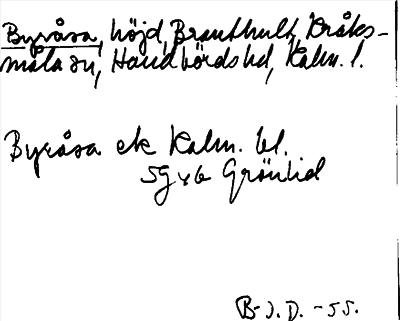 Byråsa, höjd, Brunthult, Kråks-
måla sn, Handbörds hd, Kalm. l.
Byråsa ek Kalm. bl.
5G x6 Grönlid
B-J.D. -55.